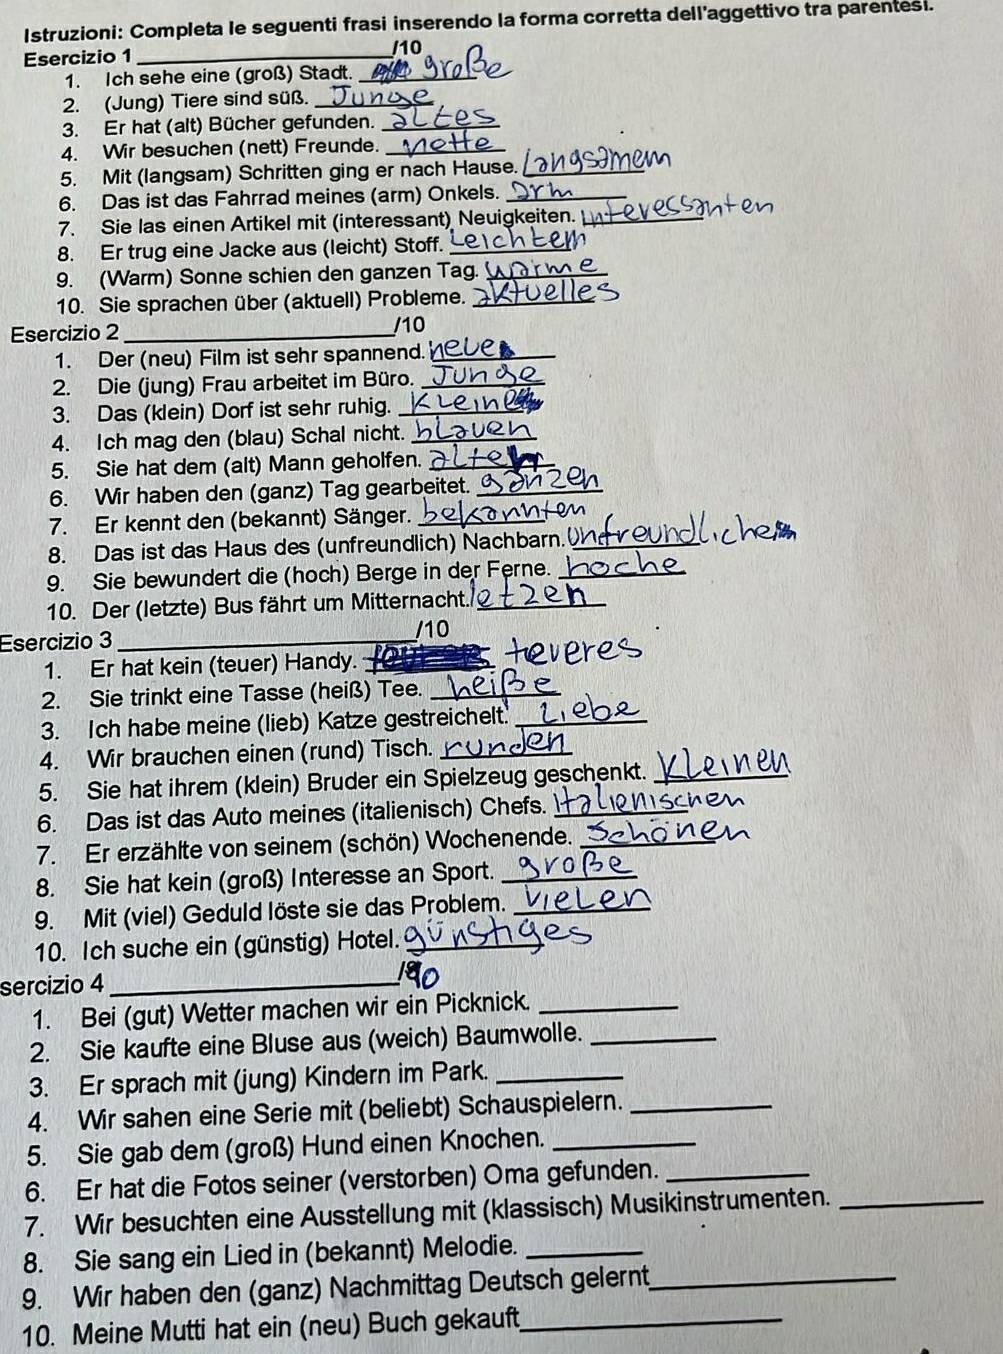 Istruzioni: Completa le seguenti frasi inserendo la forma corretta dell'aggettivo tra parentesi.
Esercizio 1 ____________/10
1. Ich sehe eine (groß) Stadt. große
2. (Jung) Tiere sind süß. Junge
3. Er hat (alt) Bücher gefunden. altes
4. Wir besuchen (nett) Freunde. nette
5. Mit (langsam) Schritten ging er nach Hause. langsamem
6. Das ist das Fahrrad meines (arm) Onkels. arm
7. Sie las einen Artikel mit (interessant) Neuigkeiten. interessanten
8. Er trug eine Jacke aus (leicht) Stoff. Leichtem
9. (Warm) Sonne schien den ganzen Tag. warme
10. Sie sprachen über (aktuell) Probleme. aktuelles
Esercizio 2 ____________/10
1. Der (neu) Film ist sehr spannend. neue
2. Die (jung) Frau arbeitet im Büro. Junge
3. Das (klein) Dorf ist sehr ruhig. Kleine
4. Ich mag den (blau) Schal nicht. blauen
5. Sie hat dem (alt) Mann geholfen.
6. Wir haben den (ganz) Tag gearbeitet. ganzen
7. Er kennt den (bekannt) Sänger. bekannten
8. Das ist das Haus des (unfreundlich) Nachbarn. Unfreundliche
9. Sie bewundert die (hoch) Berge in der Ferne. hoche
10. Der (letzte) Bus fährt um Mitternacht. letzen
Esercizio 3 ____________/10
1. Er hat kein (teuer) Handy. teveres
2. Sie trinkt eine Tasse (heiß) Tee. heiße
3. Ich habe meine (lieb) Katze gestreichelt. Liebe
4. Wir brauchen einen (rund) Tisch. runden
5. Sie hat ihrem (klein) Bruder ein Spielzeug geschenkt. Kleinen
6. Das ist das Auto meines (italienisch) Chefs. Italienischen
7. Er erzählte von seinem (schön) Wochenende. Schönen
8. Sie hat kein (groß) Interesse an Sport. große
9. Mit (viel) Geduld löste sie das Problem. vielen
10. Ich suche ein (günstig) Hotel. günstiges
sercizio 4 ____________/10
1. Bei (gut) Wetter machen wir ein Picknick. ________
2. Sie kaufte eine Bluse aus (weich) Baumwolle. ________
3. Er sprach mit (jung) Kindern im Park. ________
4. Wir sahen eine Serie mit (beliebt) Schauspielern. ________
5. Sie gab dem (groß) Hund einen Knochen. ________
6. Er hat die Fotos seiner (verstorben) Oma gefunden. ________
7. Wir besuchten eine Ausstellung mit (klassisch) Musikinstrumenten. ________
8. Sie sang ein Lied in (bekannt) Melodie. ________
9. Wir haben den (ganz) Nachmittag Deutsch gelernt________
10. Meine Mutti hat ein (neu) Buch gekauft________